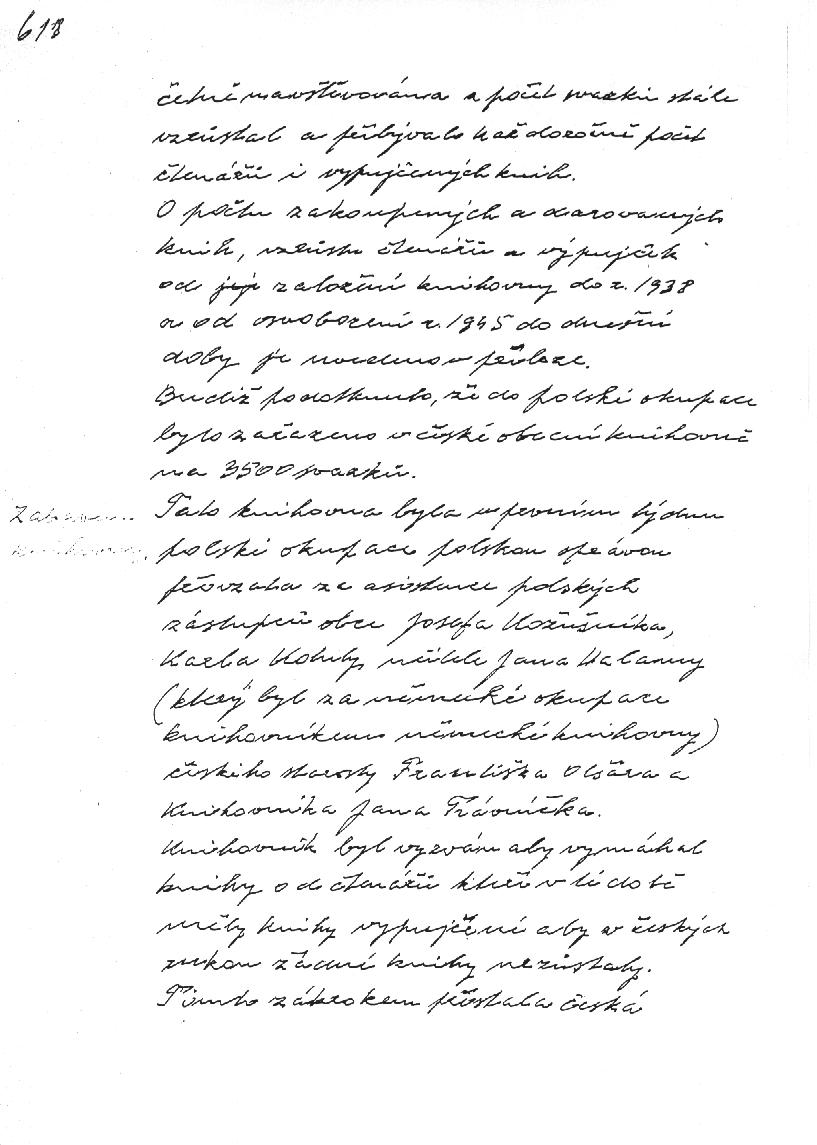 618
četně navštěvována a počet svazků stále
vzrůstal a přibývalo každoročně počet
čtenářů i vypujčených knih.
O počtu zakoupených a darovaných
knih, vzrůstu čtenářů a výpujček
od její založení knihovny do r. 1938
a od osvobození r. 1945 do dnešní
doby je uvedeno v příloze.
Budiž podotknuto, že do polské okupace
bylo zařazeno v české obecní knihovně
na 3500 svazků.
Zabavení Tato knihovna byla v prvním týdnu
knihovny. polské okupace polskou správou
převzata za asistence polských
zástupců obce Josefa Kožušníka,
Karla Kohuta, učitele Jana Kalanny
(který byl za německé okupace
knihovníkem německé knihovny)
českého starosty Františka Olšára a
Knihovníka Jana Trávníčka.
Knihovník byl vyzván aby vymáhal
knihy od čtenářů kteří v té době
měly knihy vypujčení aby v českých
rukou žádné knihy nezůstaly.
Tímto zákrokem přestala česká